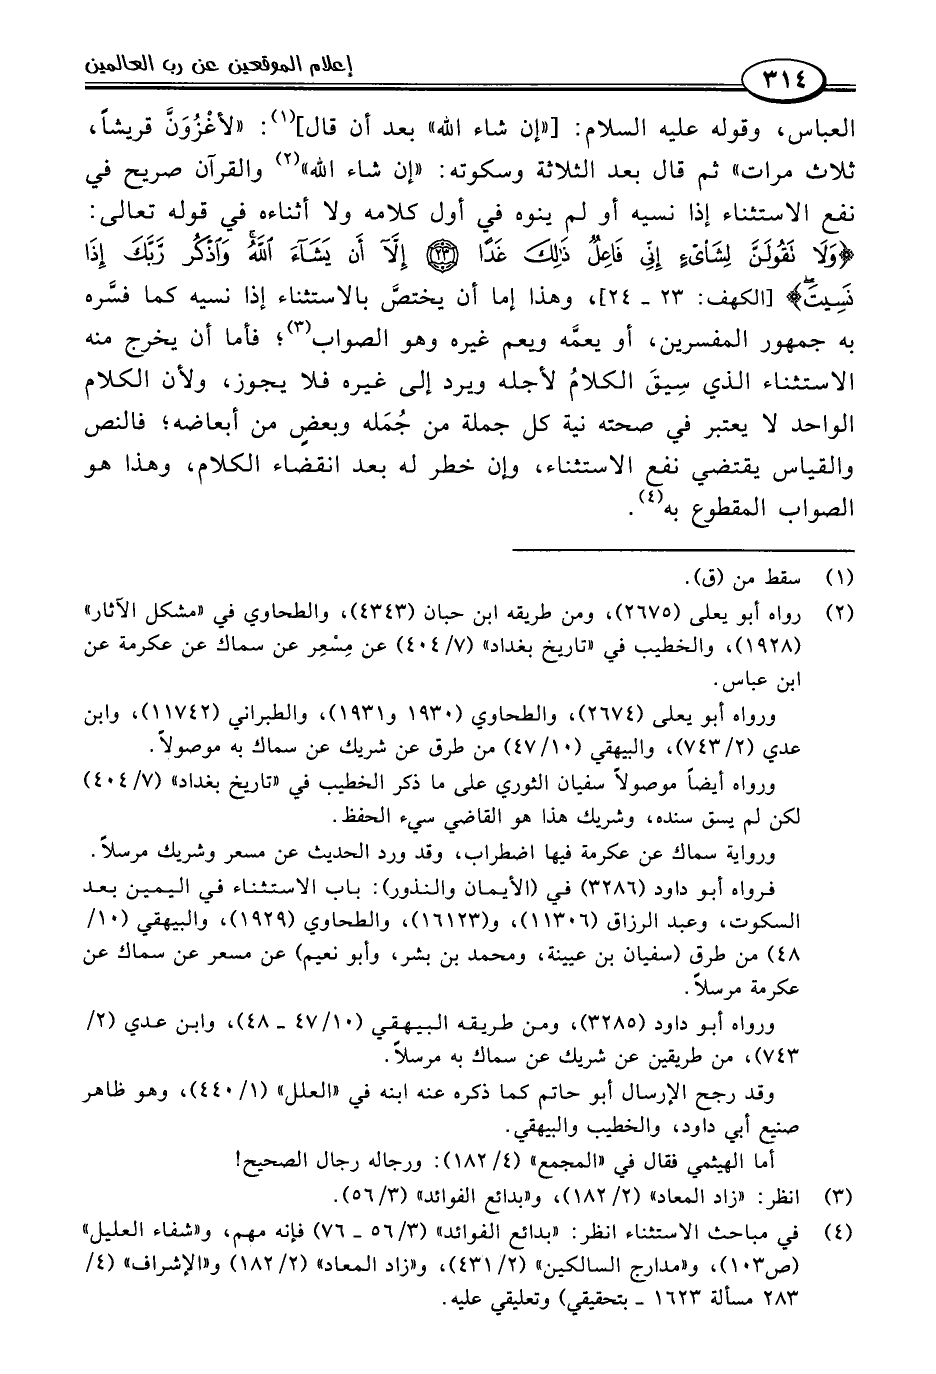 إعلام الموقعين عن رب العالمين
٣١٤
العباس، وقوله عليه السلام: [«إن شاء الله» بعد أن قال](١): «لأغْزُوَنَّ قريشاً،
ثلاث مرات» ثم قال بعد الثلاثة وسكوته: «إن شاء الله»(٢) والقرآن صريح في
نفع الاستثناء إذا نسيه أو لم ينوه في أول كلامه ولا أثناءه في قوله تعالى:
﴿وَلَا نَقُولَنَّ لِشَاْىْءٍ إِنِّي فَاعِلٌ ذَٰلِكَ غَدًا ۝٢٣ إِلَّا أَن يَشَآءَ ٱللَّهُ وَٱذْكُر رَّبَّكَ إِذَا
نَسِيتَ﴾ [الكهف: ٢٣ ـ ٢٤]، وهذا إما أن يختصَّ بالاستثناء إذا نسيه كما فسَّره
به جمهور المفسرين، أو يعمَّه ويعم غيره وهو الصواب(٣)؛ فأما أن يخرج منه
الاستثناء الذي سِيقَ الكلامُ لأجله ويرد إلى غيره فلا يجوز، ولأن الكلام
الواحد لا يعتبر في صحته نية كل جملة من جُمَله وبعضٍ من أبعاضه؛ فالنص
والقياس يقتضي نفع الاستثناء، وإن خطر له بعد انقضاء الكلام، وهذا هو
الصواب المقطوع به(٤).
(١) سقط من (ق).
(٢) رواه أبو يعلى (٢٦٧٥)، ومن طريقه ابن حبان (٤٣٤٣)، والطحاوي في «مشكل الآثار»
(١٩٢٨)، والخطيب في «تاريخ بغداد» (٧/ ٤٠٤) عن مِسْعِر عن سماك عن عكرمة عن
ابن عباس.
ورواه أبو يعلى (٢٦٧٤)، والطحاوي (١٩٣٠ و١٩٣١)، والطبراني (١١٧٤٢)، وابن
عدي (٢/ ٧٤٣)، والبيهقي (١٠/ ٤٧) من طرق عن شريك عن سماك به موصولاً.
ورواه أيضاً موصولاً سفيان الثوري على ما ذكر الخطيب في «تاريخ بغداد» (٧/ ٤٠٤)
لكن لم يسق سنده، وشريك هذا هو القاضي سيء الحفظ.
ورواية سماك عن عكرمة فيها اضطراب، وقد ورد الحديث عن مسعر وشريك مرسلاً.
فرواه أبو داود (٣٢٨٦) في (الأيمان والنذور): باب الاستثناء في اليمين بعد
السكوت، وعبد الرزاق (١١٣٠٦)، و(١٦١٢٣)، والطحاوي (١٩٢٩)، والبيهقي (١٠/
٤٨) من طرق (سفيان بن عيينة، ومحمد بن بشر، وأبو نعيم) عن مسعر عن سماك عن
عكرمة مرسلاً.
ورواه أبو داود (٣٢٨٥)، ومن طريقه البيهقي (١٠/ ٤٧ ـ ٤٨)، وابن عدي (٢/
٧٤٣)، من طريقين عن شريك عن سماك به مرسلاً.
وقد رجح الإرسال أبو حاتم كما ذكره عنه ابنه في «العلل» (١/ ٤٤٠)، وهو ظاهر
صنيع أبي داود، والخطيب والبيهقي.
أما الهيثمي فقال في «المجمع» (٤/ ١٨٢): ورجاله رجال الصحيح!
(٣) انظر: «زاد المعاد» (٢/ ١٨٢)، و«بدائع الفوائد» (٣/ ٥٦).
(٤) في مباحث الاستثناء انظر: «بدائع الفوائد» (٣/ ٥٦ ـ ٧٦) فإنه مهم، و«شفاء العليل»
(ص١٠٣)، و«مدارج السالكين» (٢/ ٤٣١)، و«زاد المعاد» (٢/ ١٨٢) و«الإشراف» (٤/
٢٨٣ مسألة ١٦٢٣ ـ بتحقيقي) وتعليقي عليه.